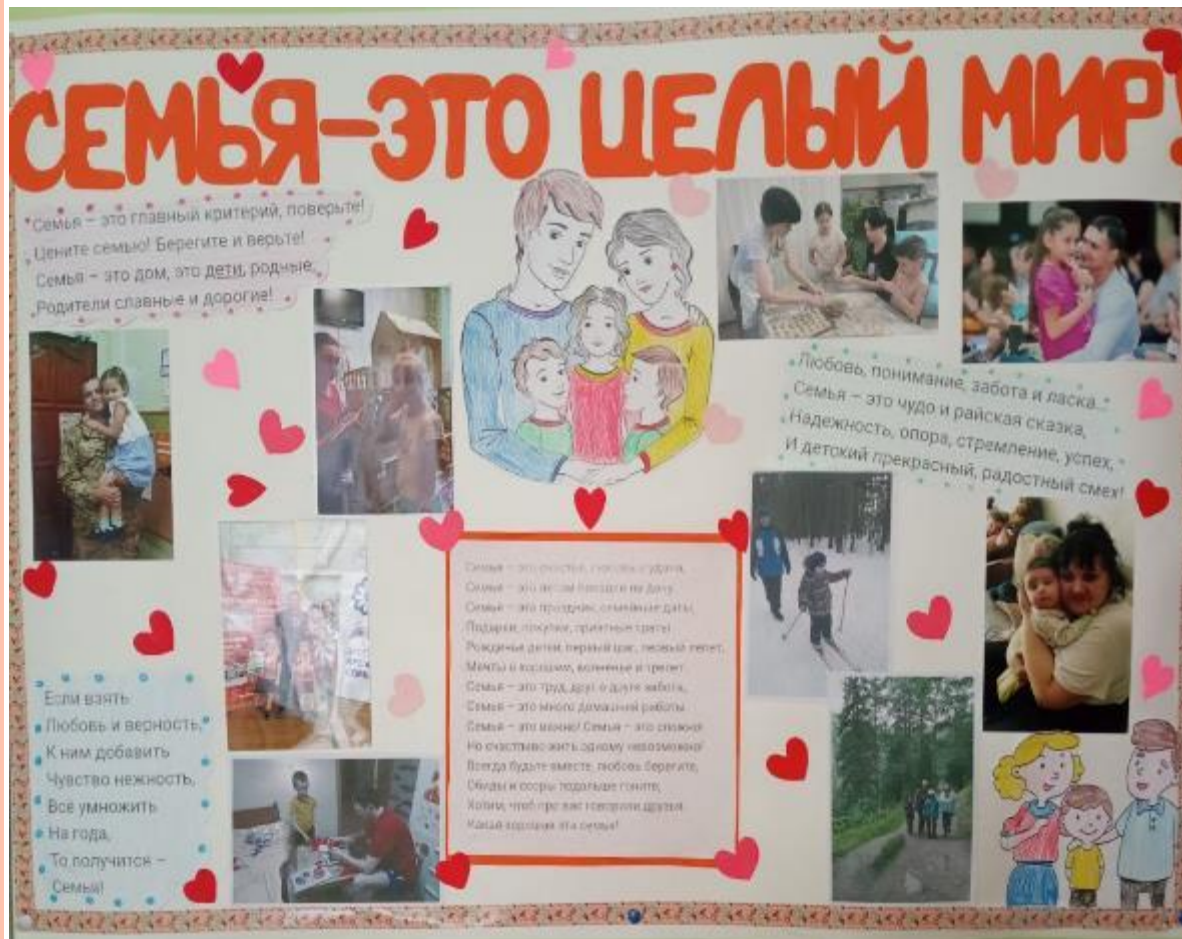 СЕМЬЯ-ЭТО ЦЕЛЫЙ МИР!
Семья – это главный критерий, поверьте!
Цените семью! Берегите и верьте!
Семья – это дом, это дети, родные,
Родители славные и дорогие!
Любовь, понимание, забота и ласка...
Семья – это чудо и райская сказка,
Надежность, опора, стремление, успех,
И детский прекрасный, радостный смех!
Семья – это счастье, любовь и удача,
Семья – это летом поездки на дачу.
Семья – это праздник, семейные даты,
Подарки, покупки, приятные траты.
Рожденье детей, первый шаг, первый лепет,
Мечты о хорошем, волненье и трепет.
Семья – это труд, друг о друге забота,
Семья – это много домашней работы.
Семья – это важно! Семья – это сложно!
Но счастливо жить одному невозможно!
Всегда будьте вместе, любовь берегите,
Обиды и ссоры подальше гоните,
Хотим, чтоб про вас говорили друзья
Какая хорошая эта семья!
Если взять
Любовь и верность,
К ним добавить
Чувство нежность,
Всё умножить
На года,
То получится –
Семья!